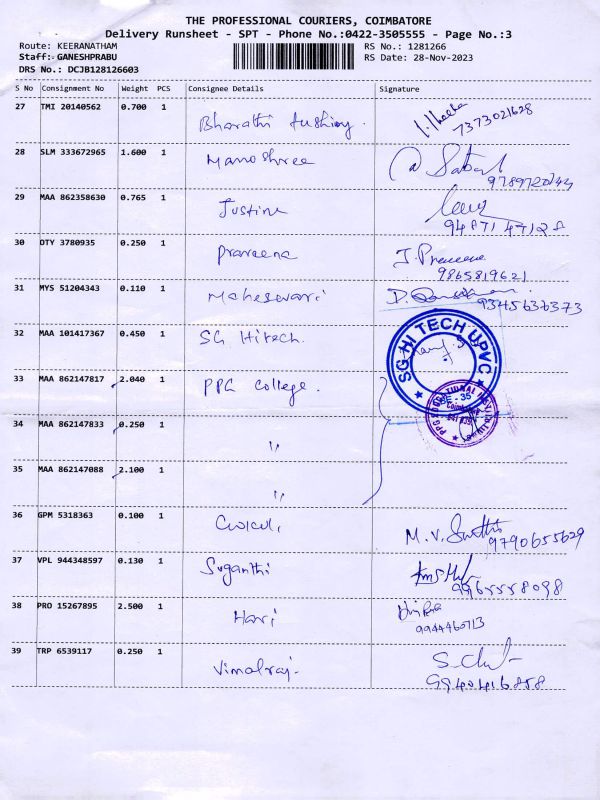 THE PROFESSIONAL COURIERS, COIMBATORE
Delivery Runsheet - SPT - Phone No.:0422-3505555 - Page No.:3
Route: KEERANATHAM RS No.: 1281266
Staff: GANESHPRABU RS Date: 28-Nov-2023
DRS No.: DCJB128126603
S No Consignment No Weight PCS Consignee Details Signature
27 TMI 20140562 0.700 1 Bharathi 7373021628
28 SLM 333672965 1.600 1 Manoshree
29 MAA 862358630 0.765 1 Justina
30 OTY 3780935 0.250 1 Praveena J. Praveena
9865819621
31 MYS 51204343 0.110 1 Maheswari D. 9345636373
32 MAA 101417367 0.450 1 SG Hitech.
SG HI TECH UPVC
33 MAA 862147817 2.040 1 PPG College.
34 MAA 862147833 0.250 1 "
35 MAA 862147088 2.100 1 "
36 GPM 5318363 0.100 1 M.V.
9790655629
37 VPL 944348597 0.130 1 Suganthi
9965558098
38 PRO 15267895 2.500 1 Hari
9944460713
39 TRP 6539117 0.250 1 Vimalraj.
9940416858